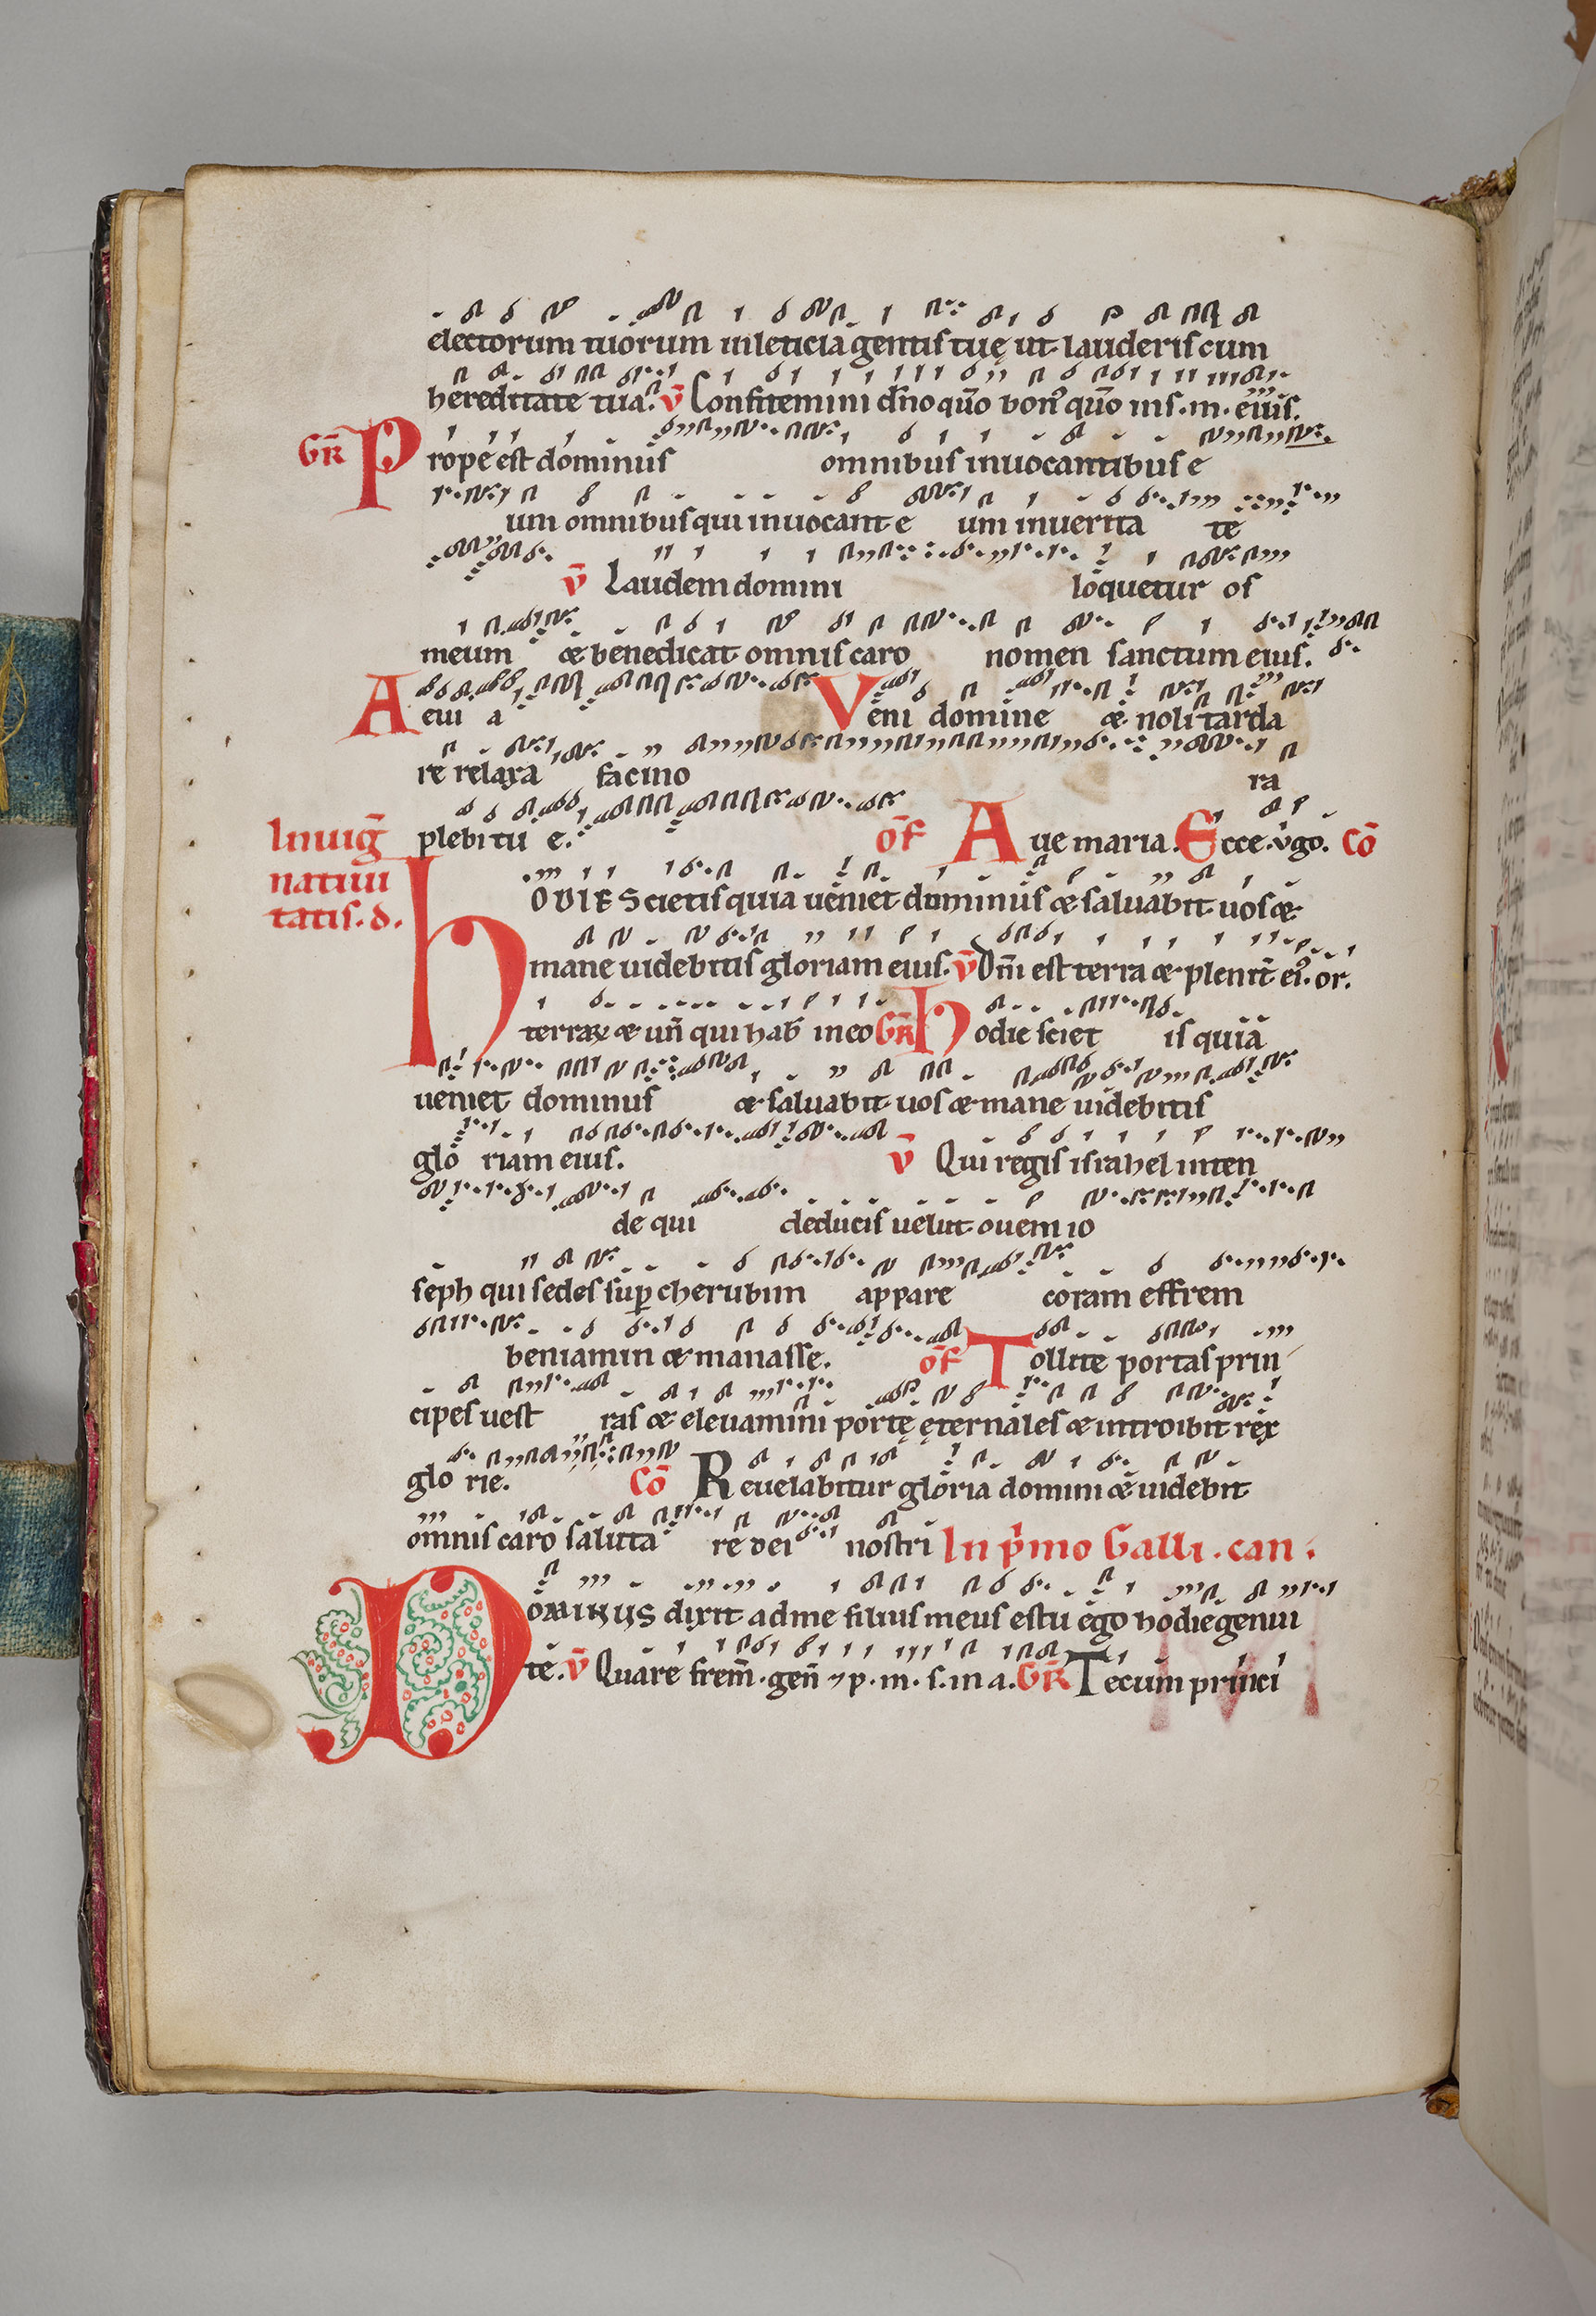 electorum tuorum inleticia gentis tuę ut lauderis cum
hereditate tua. v̄ Confitemini dn̄o qūo bon' qūo in s. m. eius.
GR̄ Prope est dominus omnibus inuocantibus e
um omnibus qui inuocant e um inuerita te
v̄ Laudem domini loquetur os
meum & benedicat omnis caro nomen sanctum eius.
Aeui a Veni domine & noli tarda
re relaxa facino ra
plebi tu e. OF̄ Aue maria. CŌ Ecce v̓go.
In uig̅
natiui
tatis. d.
hODIE Scietis quia ueniet dominus & saluabit uos &
mane uidebitis gloriam eius. v̄ Dn̄i est terra & plenit̄ ei'. or.
terrarꝝ & un̄ qui hab̄ in eo GR̄ hodie sciet is quia
ueniet dominus & saluabit uos & mane uidebitis
glo riam eius. v̄ Qui regis israhel inten
de qui deducis uelut ouem io
seph qui sedes suꝑ cherubim appare coram effrem
beniamin & manasse. OF̄ Tollite portas prin
cipes uest ras & eleuamini portę ęternales & introibit rex
glo rie. CŌ Reuelabitur gloria domini & uidebit
omnis caro saluta re dei nostri In p̓mo Galli. can.
DOMINUS dixit ad me filius meus es tu ego hodie genui
te. v̄ Quare frem̄. gen̄ ⁊ p. m. s. in a. GR̄ Tecum princi